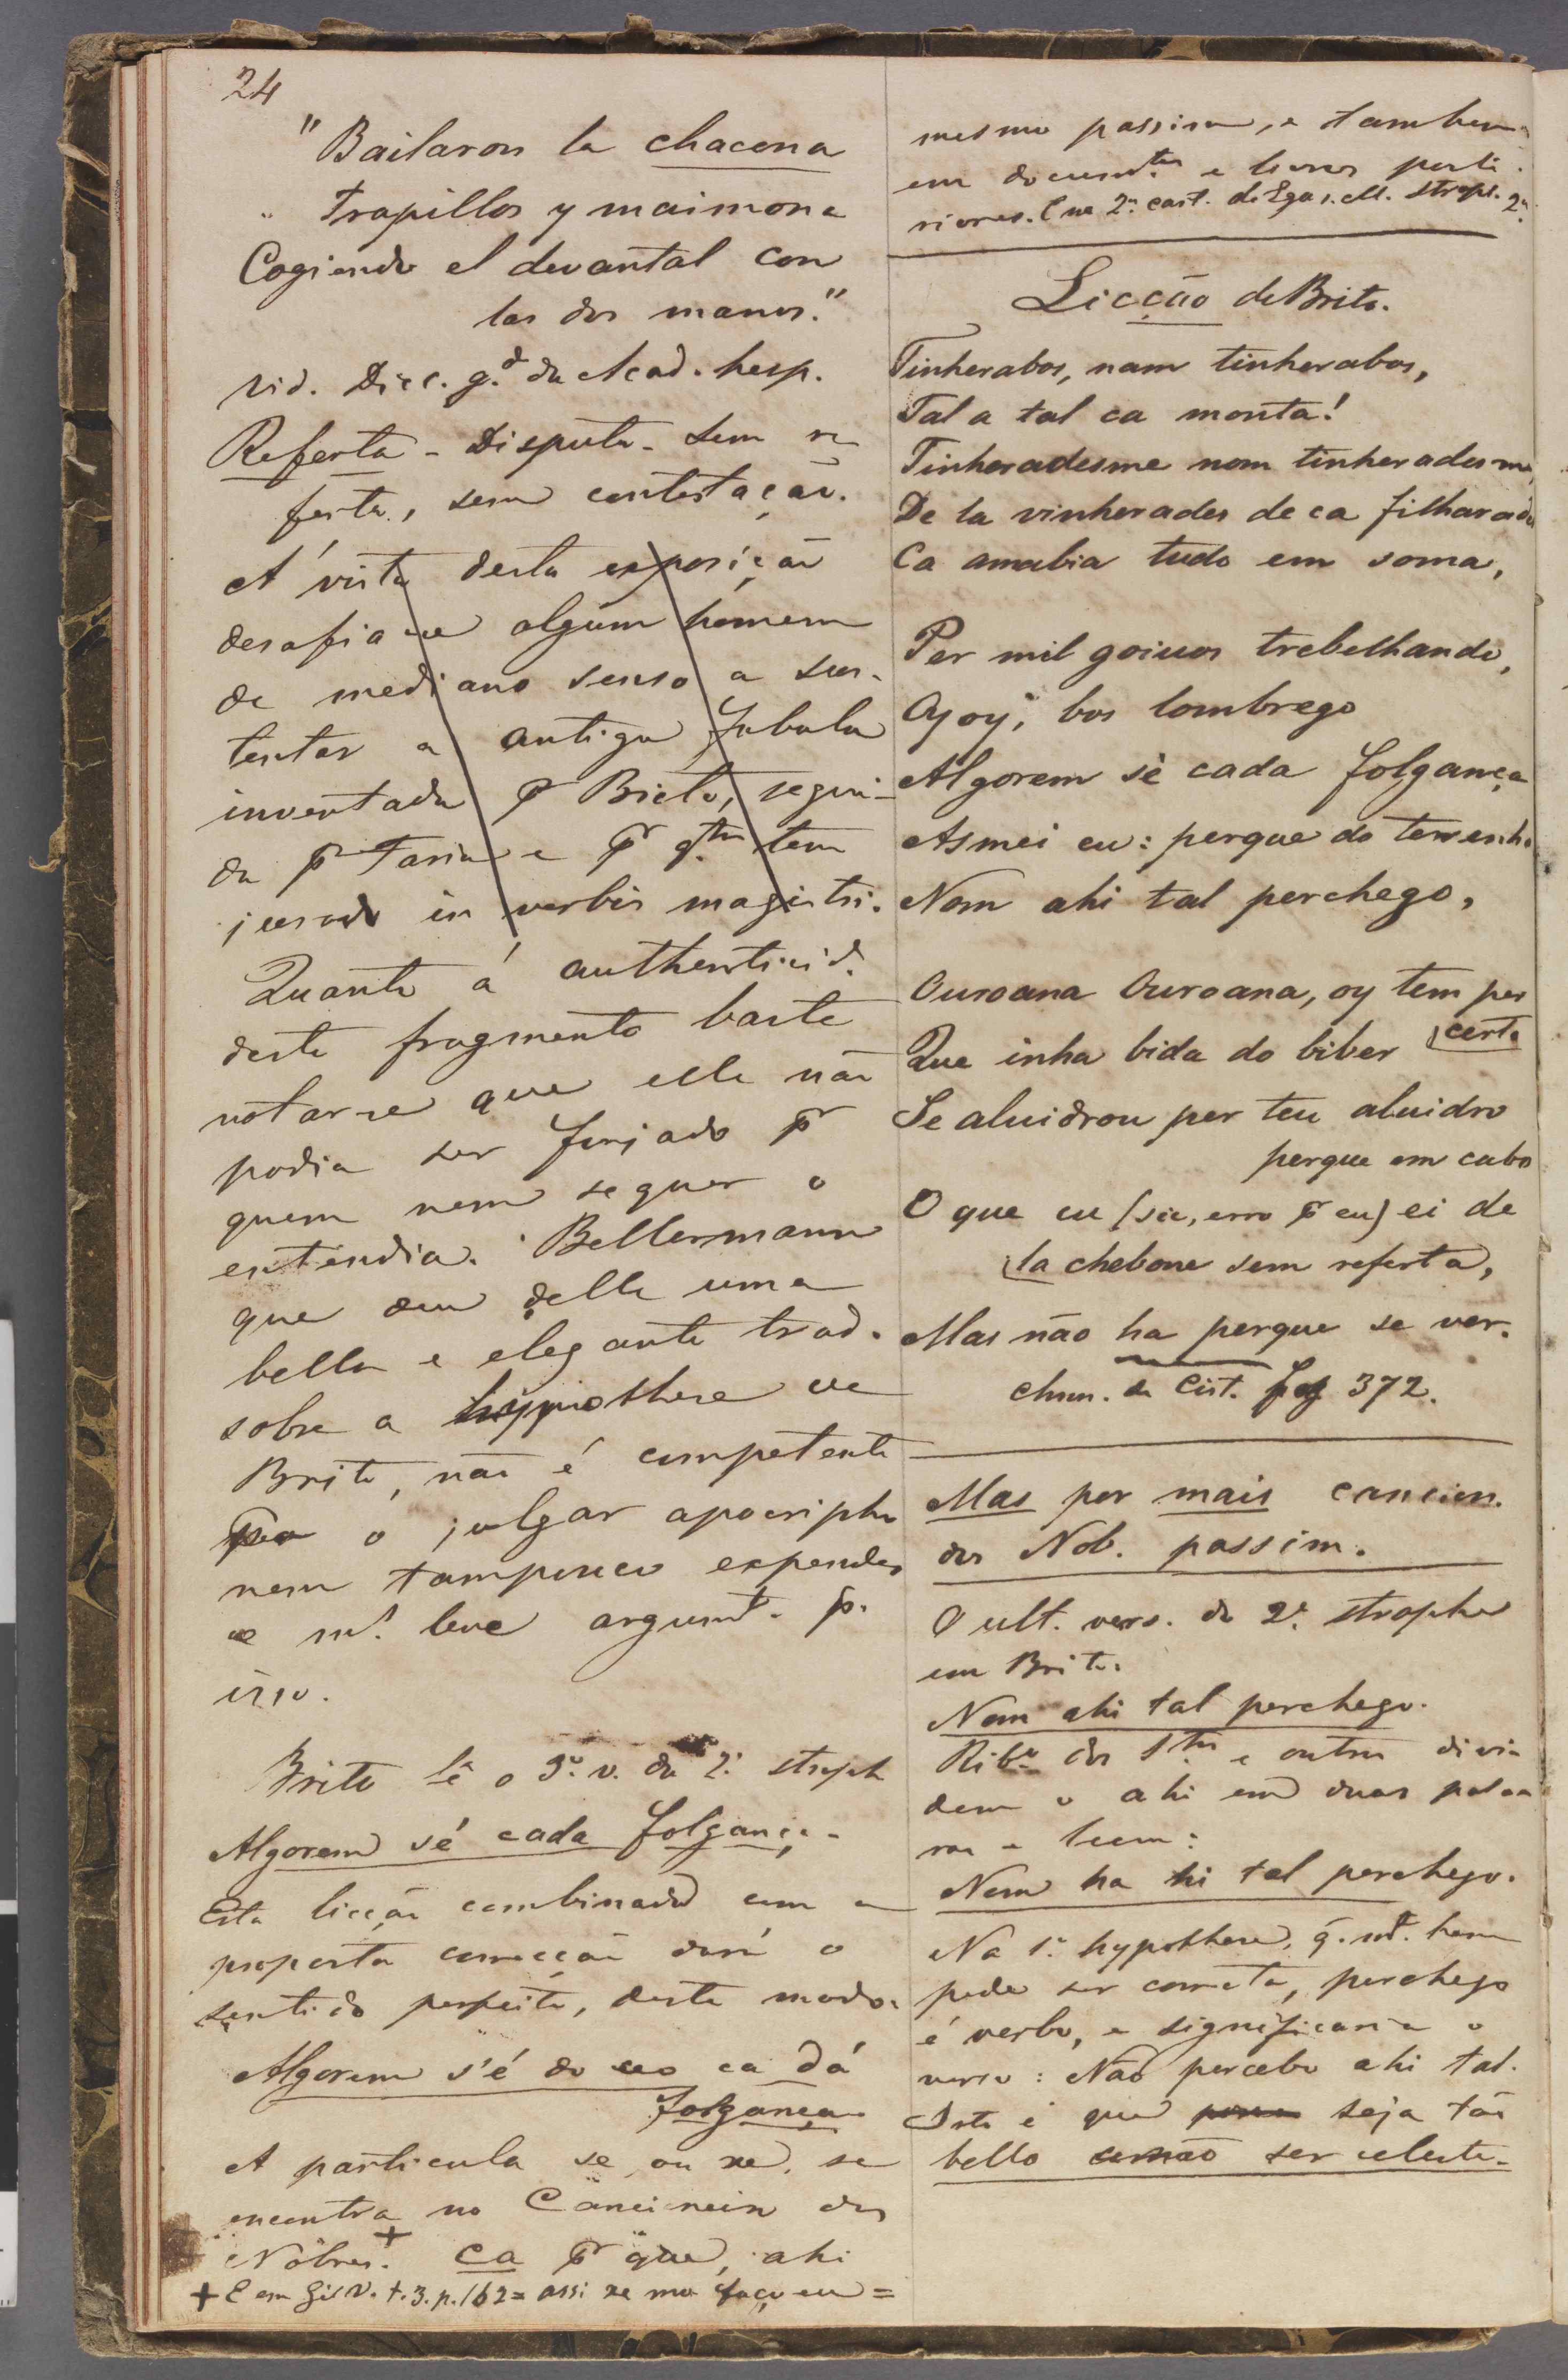 24
"Bailaron la chacona
" Trapillos y maimona
Cogiendo el devantal con
las dos manos."
vid. Dicc. g.^d da Acad. hesp.
Referta - Disputa - Sem re
ferta, sem contestação.
A' vista desta exposição
desafia-se algum homem
de mediano senso a sus-
tentar a antiga fabula
inventada pr Brito, segui-
da pr Faria e pr q.tos tem
jurado in verbis magistri.
Quanto á authenticid.
deste fragmento baste
notar-se que elle não
podia ser forjado pr
quem nem sequer o
entendia. Bellermann
que deu delle uma
bella e elegante trad.
sobre a hypothese de
Brito, não é competente
pra o julgar apocripho
nem tampouco expender
o m.s leve argumt. p.
isso.
Brito lê o 3.º v. da 2.ª stroph
Algorem sé cada folgança -
Esta licção combinada com a
proposta correcção dará o
sentido perfeito, deste modo.
Algorem s'é do seo ca dá
folgança.
A particula se ou xe, se
encontra no Cancineiro dos
Nobres. + Ca pr que, ahi
+ E em Gil V. t. 3. p. 162 = assi xe mo faço eu =
mesmo passim, e tambem
em documtos e livros poste
riores. (na 2.ª cart. de Egas. M. stroph. 2.ª
Licção de Brito.
Tinherabos, nam tinherabos,
Tal a tal ca monta!
Tinheradesme nom tinherades me,
De la vinherades de ca filharades
Ca amabia tudo em soma,
Per mil goiuos trebelhando,
Oy oy, bos lombrego
Algorem sè cada folgança
Asmei eu: perque do terrenho
Nom ahi tal perchego,
Ouroana Ouroana, oy tem per
certo
Que inha bida do biber
Se aluidrou per teu aluidro
perque em cabo
O que eu (sic, erro pr eu) ei de
la chebone sem referta,
Mas não ha perque se ver.
Chron. de Cist. fol 372.
Mas por mais cancion.
dos Nob. passim.
O ult. vers. da 2.ª strophe
em Brito.
Nom ahi tal perchego.
Ribro dos Stos e outros divi-
dem o ahi em duas palav
ras e leem:
Nem ha hi tal perchego.
Na 1.ª hypothese, q. mt. bem
pode ser correcta, perchego
é verbo, e significaria o
verso: Não percebo ahi tal.
Isto é que seja tão
bello senão ser celeste.